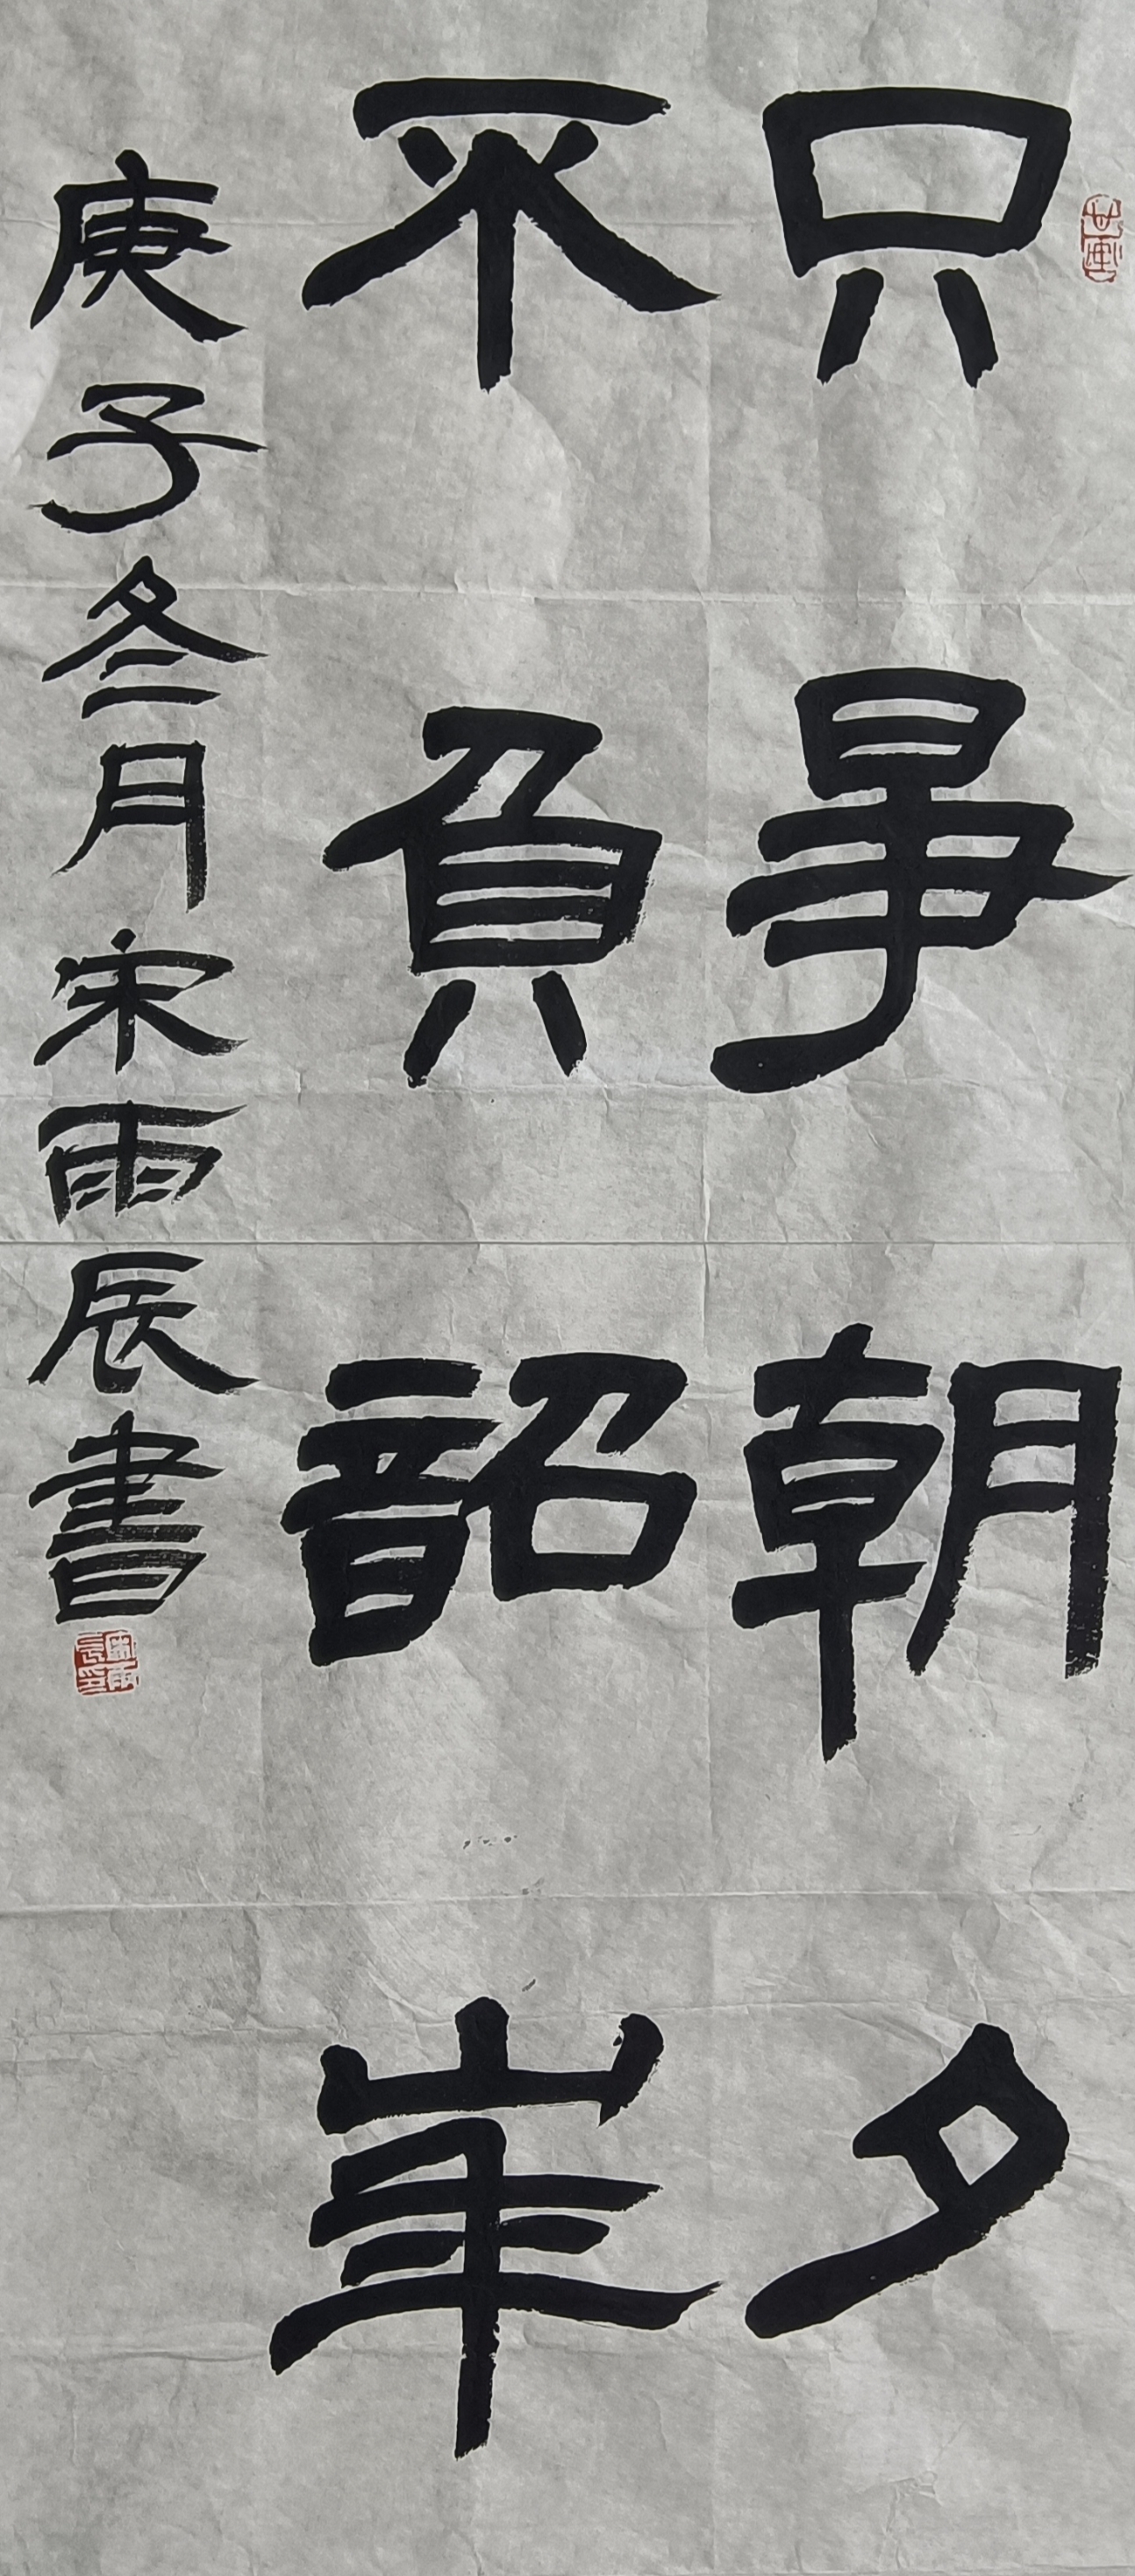 只爭朝夕
不負韶華
庚子冬月宋雨辰書
宋雨辰印